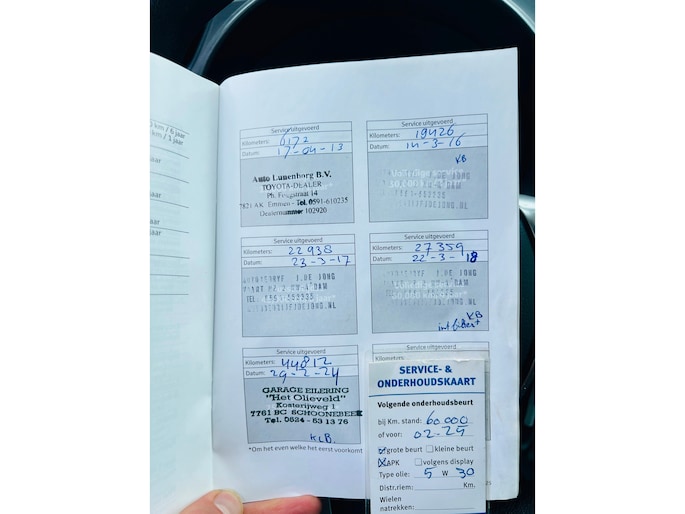 km / 6 jaar
km / 3 jaar
jaar
jaar
jaar
jaar
Service uitgevoerd
Kilometers: 6172
Datum: 17-04-13
Auto Lunenborg B.V.
TOYOTA-DEALER
Ph. Foogstraat 14
7821 AK Emmen - Tel. 0591-610235
Dealernummer 102920
Service uitgevoerd
Kilometers: 19426
Datum: 14-3-16
KB
Service uitgevoerd
Kilometers: 22938
Datum: 23-3-17
J. DE JONG
Service uitgevoerd
Kilometers: 27359
Datum: 22-3-18
J. DE JONG
KB
Service uitgevoerd
Kilometers: 44812
Datum: 29-2-24
GARAGE EILERING
"Het Olieveld"
Kosterijweg 1
7761 BC SCHOONEBEEK
Tel. 0524 - 53 13 76
KLB.
*Om het even welke het eerst voorkomt
Service uitgevoerd
SERVICE- &
ONDERHOUDSKAART
Volgende onderhoudsbeurt
bij Km. stand: 60.000
of voor: 02-25
grote beurt kleine beurt
APK volgens display
Type olie: 5 W 30
Distr.riem: Km.
Wielen
natrekken: